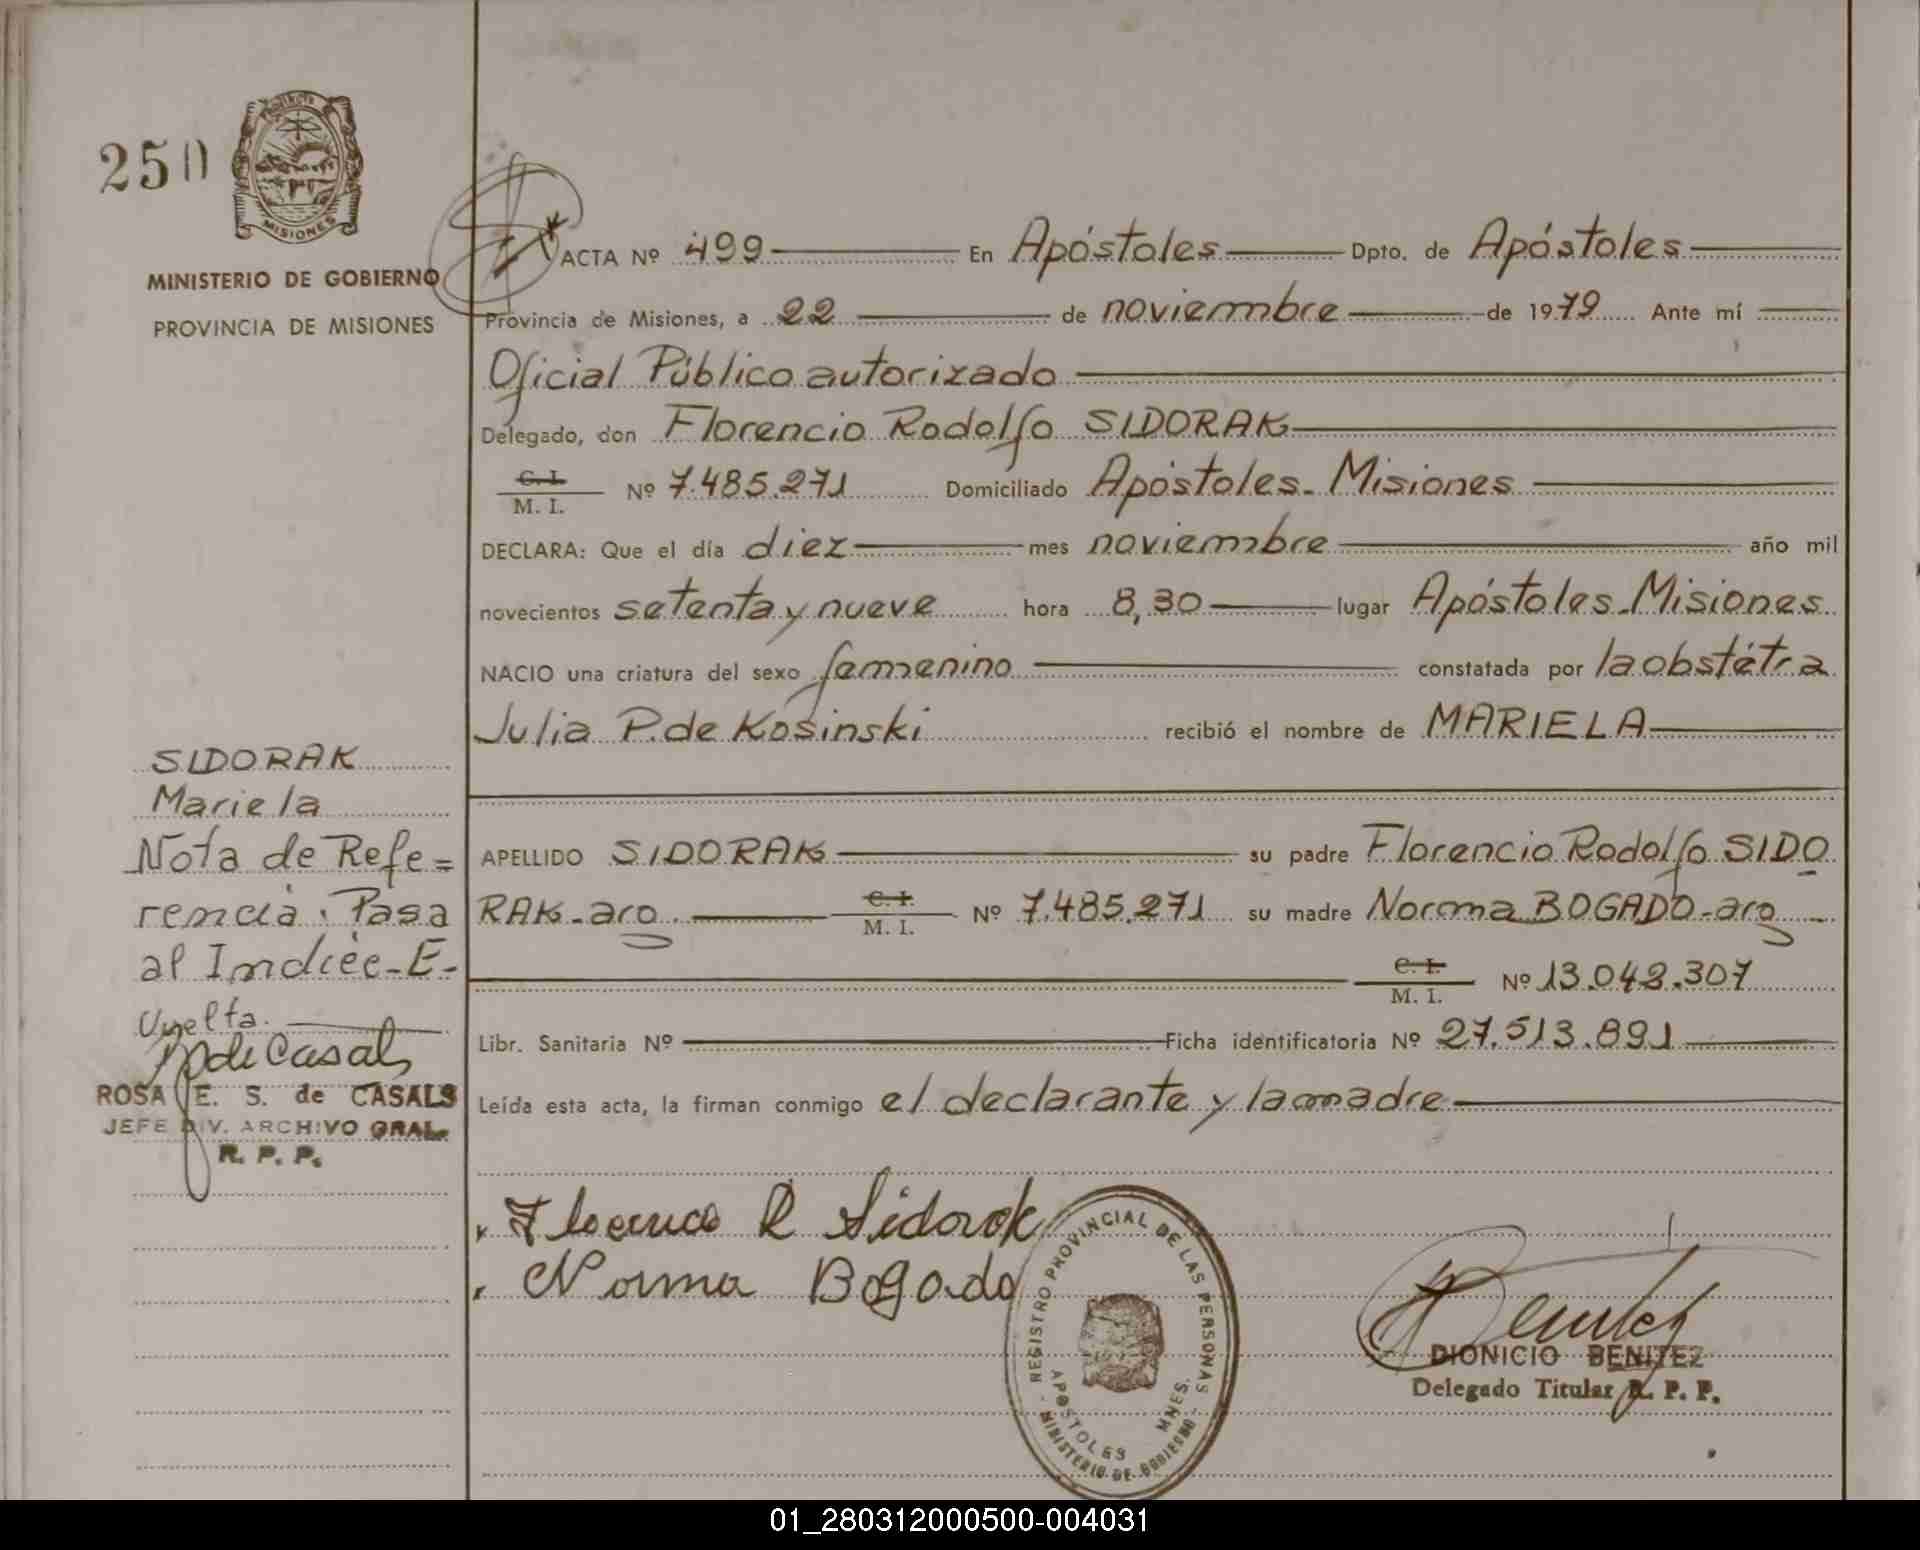 250
PROVINCIA
MISIONES
MINISTERIO DE GOBIERNO
PROVINCIA DE MISIONES
ACTA Nº 499 En Apóstoles Dpto. de Apóstoles
Provincia de Misiones, a 22 de noviembre de 1979 Ante mí
Oficial Público autorizado
Delegado, don Florencio Rodolfo SIDORAK
C. I.
M. I. Nº 7.485.271 Domiciliado Apóstoles - Misiones
DECLARA: Que el día diez mes noviembre año mil
novecientos setenta y nueve hora 8,30 lugar Apóstoles - Misiones
NACIO una criatura del sexo femenino constatada por la obstétra
Julia P. de Kosinski recibió el nombre de MARIELA
SIDORAK
Mariela
Nota de Refe=
rencia. Pasa
al Indice - E -
Vuelta.
R de Casals
ROSA E. S. de CASALS
JEFE DIV. ARCHIVO GRAL.
R. P. P.
APELLIDO SIDORAK su padre Florencio Rodolfo SIDO
RAK - arg. C. I.
M. I. Nº 7.485.271 su madre Norma BOGADO - arg
C. I.
M. I. Nº 13.042.307
Libr. Sanitaria Nº Ficha identificatoria Nº 27.513.891
Leída esta acta, la firman conmigo el declarante y la madre
Florencio R Sidorak
Norma Bogado
REGISTRO PROVINCIAL DE LAS PERSONAS
APOSTOLES MNES.
- MINISTERIO DE GOBIERNO -
Benitez
DIONICIO BENITEZ
Delegado Titular R. P. P.
01_280312000500-004031